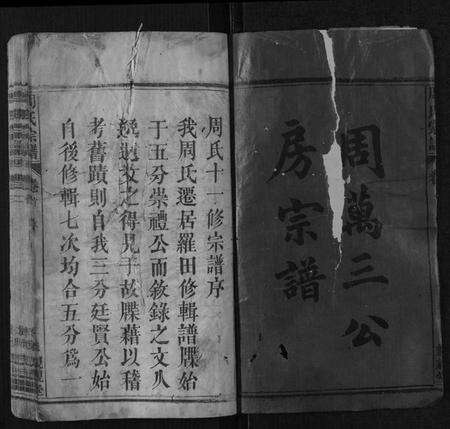 周萬三公
房宗譜
周氏十一修宗譜序
我周氏遷居羅田修輯譜牒始
于五分崇禮公而敘錄之文久
之得見乎故牒藉以稽
考舊蹟則自我三分廷賢公始
自後修輯七次均合五分為一
周氏宗譜